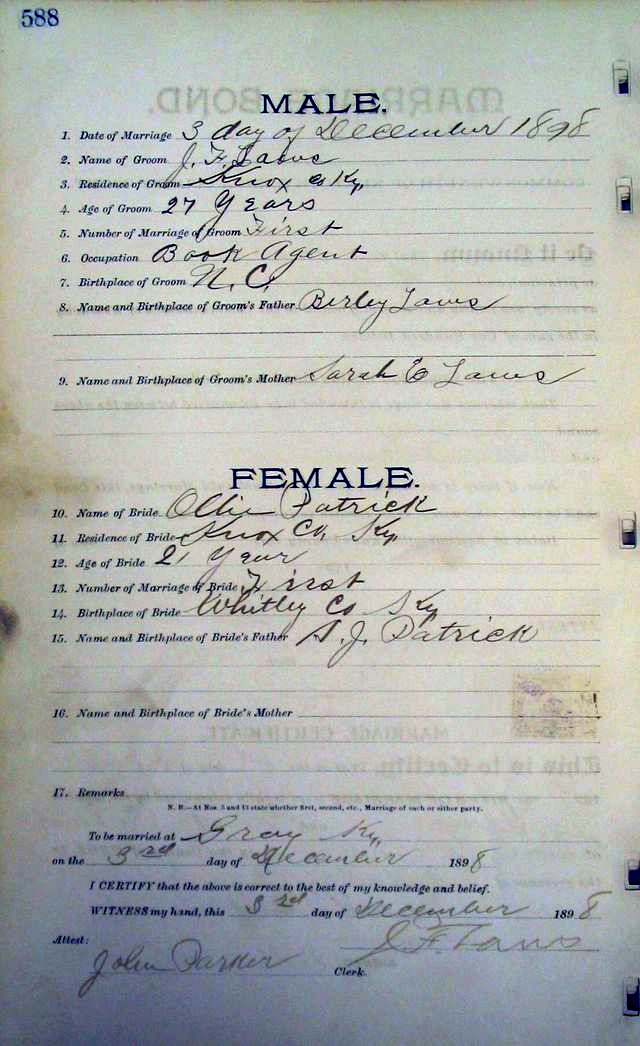 588
MALE.
1. Date of Marriage 3 day of December 1898
2. Name of Groom J. F. Laws
3. Residence of Groom Knox Co Ky,
4. Age of Groom 27 Years
5. Number of Marriage of Groom First
6. Occupation Book Agent
7. Birthplace of Groom N. C.
8. Name and Birthplace of Groom's Father Berley Laws
9. Name and Birthplace of Groom's Mother Sarah E Laws
FEMALE.
10. Name of Bride Ollie Patrick
11. Residence of Bride Knox Co, Ky,
12. Age of Bride 21 Year
13. Number of Marriage of Bride First
14. Birthplace of Bride Whitley Co Ky
15. Name and Birthplace of Bride's Father A. J. Patrick
16. Name and Birthplace of Bride's Mother
17. Remarks
N. B.—At Nos. 5 and 13 state whether first, second, etc., Marriage of each or either party.
To be married at Gray Ky,
on the 3rd day of December 1898
I CERTIFY that the above is correct to the best of my knowledge and belief.
WITNESS my hand, this 3rd day of December 1898
J. F. Laws
Attest:
John Parker
Clerk.